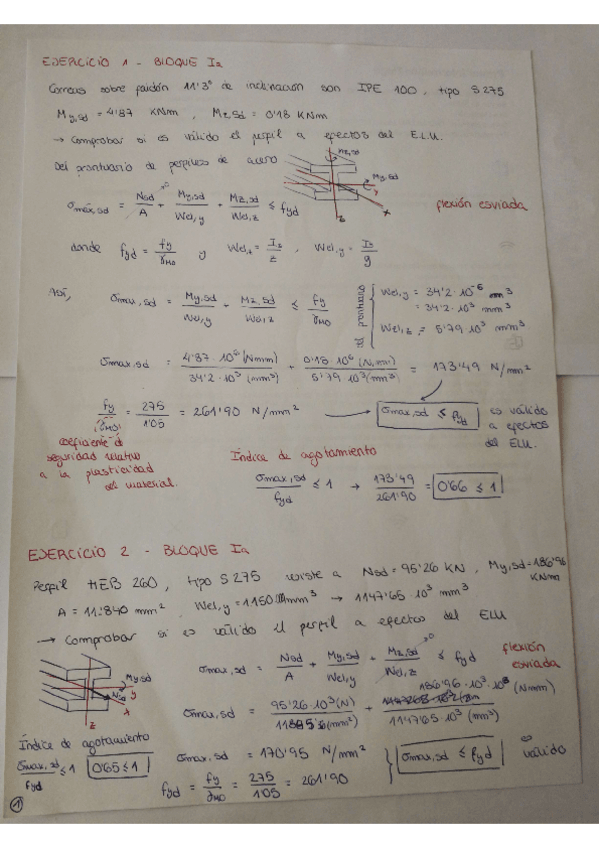 EJERCICIO 1 - BLOQUE Ia
Correas sobre faldón 11'3º de inclinación son IPE 100, tipo S275
My,sd = 4'87 KNm, Mz,sd = 0'18 KNm
→ Comprobar si es válido el perfil a efectos del E.L.U.
Del prontuario de perfiles de acero
Mz,sd
My,sd
y
x
z
σmáx,sd = Nsd/A + My,sd/Wel,y + Mz,sd/Wel,z ≤ fyd
0
flexión esviada
donde fyd = fy/γM0 y Wel,z = Iz/z, Wel,y = I/y
Así, σmax,sd = My,sd/Wel,y + Mz,sd/Wel,z ≤ fy/γM0
del prontuario
Wel,y = 34'2·10⁻⁶ m³
= 34'2·10³ mm³
Wel,z = 5'79·10³ mm³
σmax,sd = 4'87·10⁶ (Nmm)/34'2·10³ (mm³) + 0'18·10⁶ (N·mm)/5'79·10³ (mm³) = 173'49 N/mm²
fy/γM0 = 275/1'05 = 261'90 N/mm² → σmax,sd ≤ fyd es válido
a efectos
del ELU.
coeficiente de
seguridad relativo
a la plasticidad
del material.
Índice de agotamiento
σmax,sd/fyd ≤ 1 → 173'49/261'90 = 0'66 ≤ 1
EJERCICIO 2 - BLOQUE Ia
Perfil HEB 260, tipo S275 resiste a Nsd = 95'26 KN, My,sd = 186'96
KNm
A = 11.840 mm², Wel,y = 1150 mm³ → 1147'65·10³ mm³
→ Comprobar si es válido el perfil a efectos del ELU
My,sd
Nsd
y
x
z
σmax,sd = Nsd/A + My,sd/Wel,y + Mz,sd/Wel,z ≤ fyd
0
flexión
esviada
σmax,sd = 95'26·10³ (N)/(mm²) + 186'96·10³·10³ (Nmm)/1147'65·10³ (mm³)
Índice de agotamiento
σmax,sd/fyd ≤ 1 0'65 ≤ 1
σmax,sd = 170'95 N/mm²
fyd = fy/γM0 = 275/1'05 = 261'90
σmax,sd ≤ fyd es válido
1